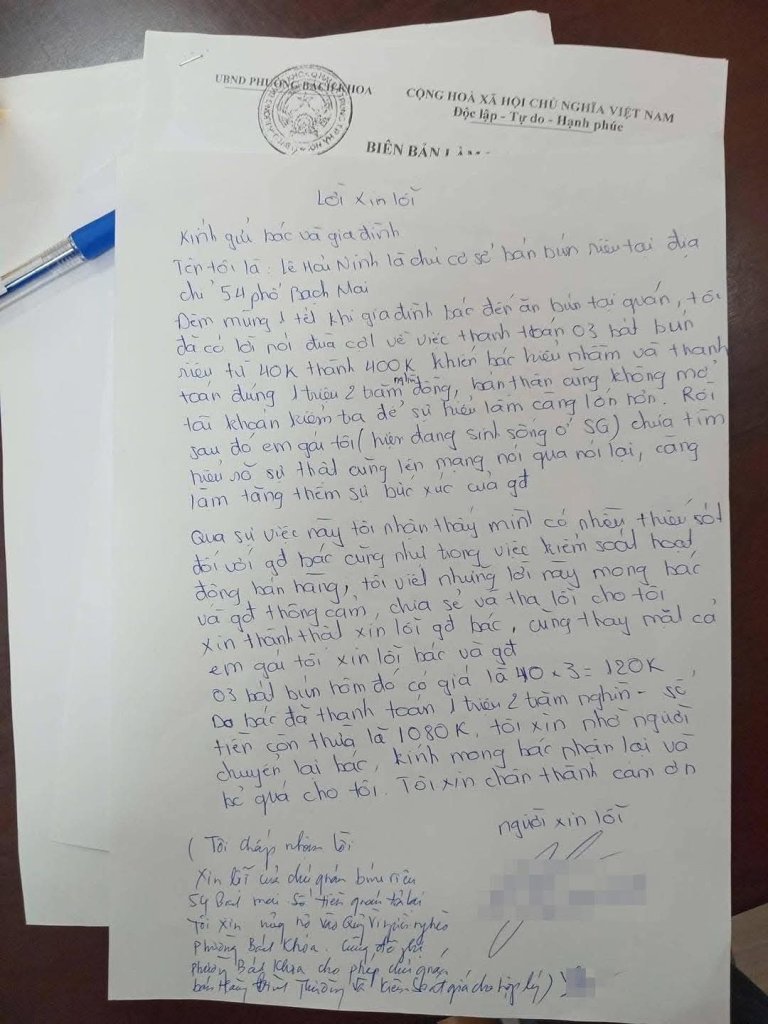 UBND PHƯỜNG BÁCH KHOA
CỘNG HOÀ XÃ HỘI CHỦ NGHĨA VIỆT NAM
Độc lập - Tự do - Hạnh phúc
BIÊN BẢN
Lời xin lỗi
Kính gửi bác và gia đình
Tên tôi là: Lê Hải Ninh là chủ cơ sở bán bún riêu tại địa
chỉ 54 phố Bạch Mai
Đêm mùng 1 tết khi gia đình bác đến ăn bún tại quán, tôi
đã có lời nói đùa cợt về việc thanh toán 03 bát bún
riêu từ 40K thành 400K khiến bác hiểu nhầm và thanh
toán đúng 1 triệu 2 trăm nghìn đồng, bản thân cũng không mở
tài khoản kiểm tra để sự hiểu lầm càng lớn hơn. Rồi
sau đó em gái tôi (hiện đang sinh sống ở SG) chưa tìm
hiểu rõ sự thật cũng lên mạng nói qua nói lại, càng
làm tăng thêm sự bức xúc của gđ
Qua sự việc này tôi nhận thấy mình có nhiều thiếu sót
đối với gđ bác cũng như trong việc kiểm soát hoạt
động bán hàng, tôi viết những lời này mong bác
và gđ thông cảm, chia sẻ và tha lỗi cho tôi
Xin thành thật xin lỗi gđ bác, cũng thay mặt cả
em gái tôi xin lỗi bác và gđ
03 bát bún hôm đó có giá là 40 x 3 = 120K
Do bác đã thanh toán 1 triệu 2 trăm nghìn - số
tiền còn thừa là 1080K, tôi xin nhờ người
chuyển lại bác, kính mong bác nhận lại và
bỏ quá cho tôi. Tôi xin chân thành cảm ơn
người xin lỗi
(Tôi chấp nhận lời
xin lỗi của chủ quán bún riêu
54 Bạch mai Số tiền quán trả lại
Tôi xin ủng hộ vào Quỹ Vì người nghèo
phường Bách Khoa.
phường Bách Khoa cho phép chủ quán
bán Hàng Bình Thường Và kiểm soát giá cho hợp lý)